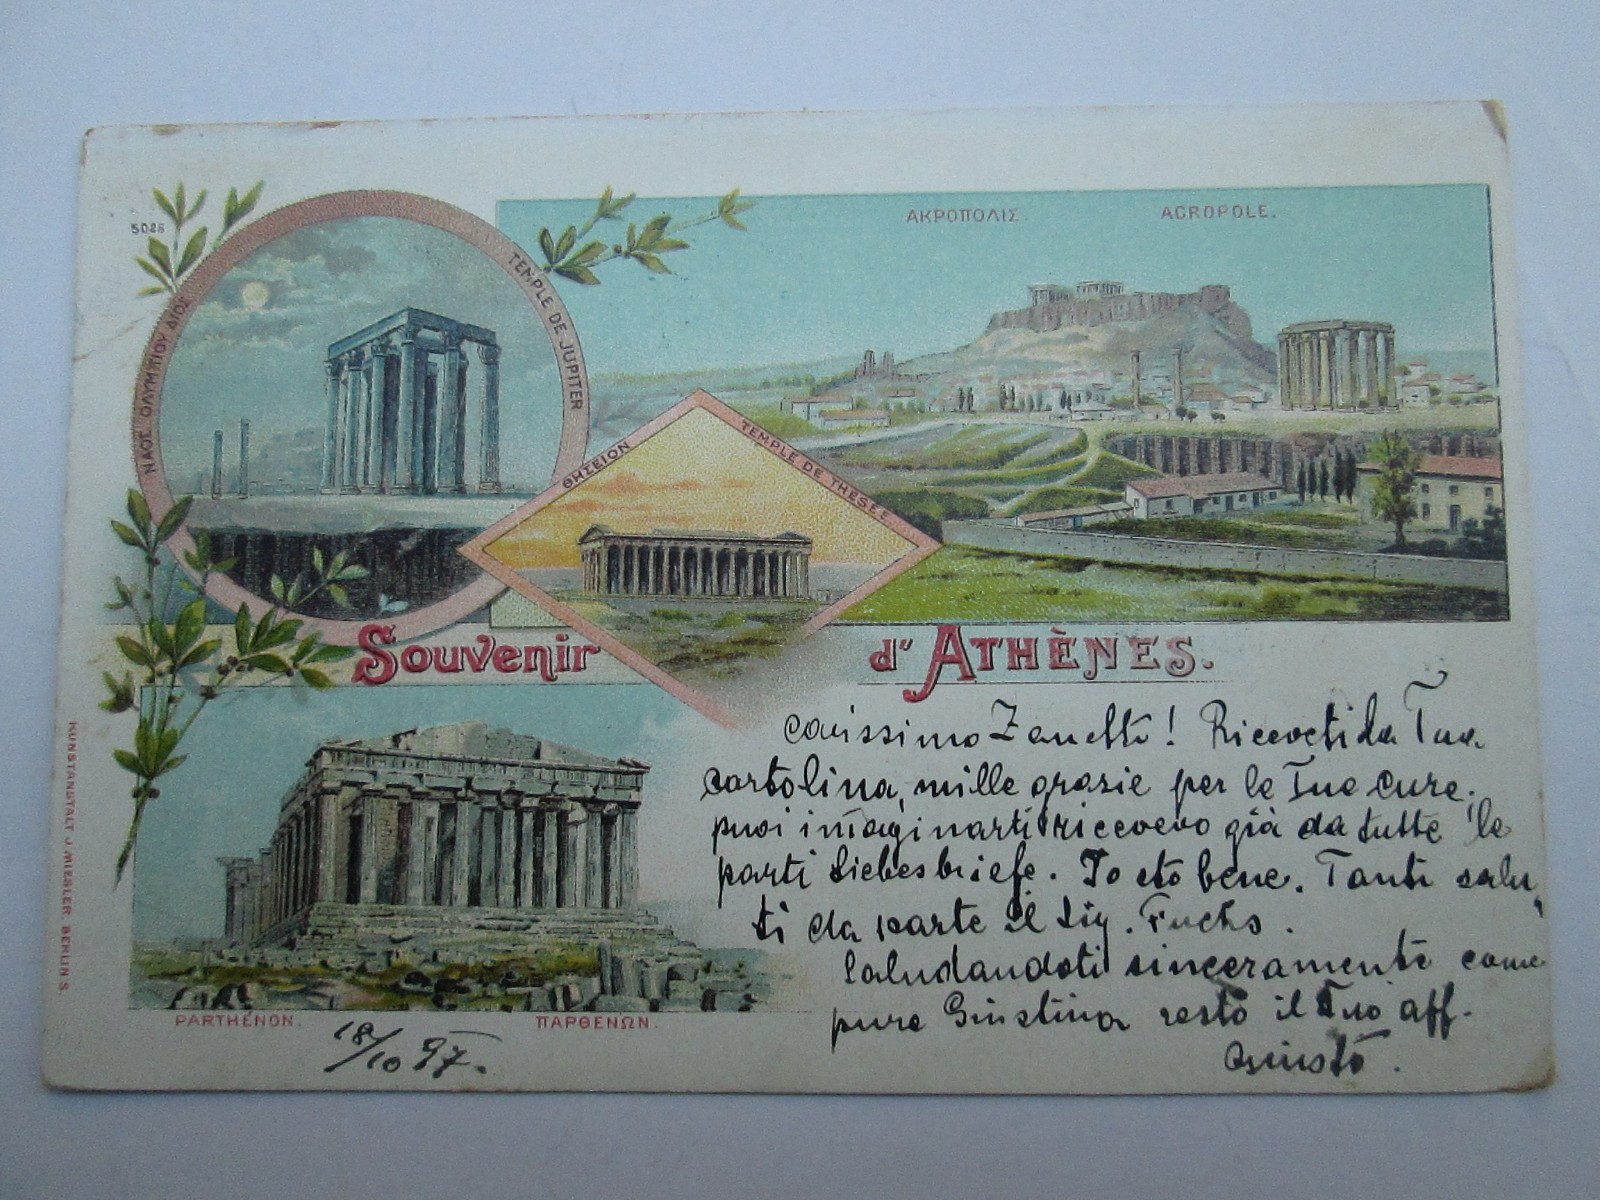 5026
ΝΑΟΣ ΟΛΥΜΠΙΟΥ ΔΙΟΣ
TEMPLE DE JUPITER
ΑΚΡΟΠΟΛΙΣ. ACROPOLE.
ΘΗΣΕΙΟΝ
TEMPLE DE THESÉE
Souvenir d'Athènes.
carissimo Zanetto! Ricevetti la Tua
cartolina, mille grasie per le Tue cure.
puoi imaginarti ricevevo già da tutte le
parti Liebesbriefe. Io sto bene. Tanti salu„
ti da parte il Sig. Fuchs.
Saludandoti sinceramente come
pure Giustina resto il Tuo aff.
Giusto.
PARTHÉNON. ΠΑΡΘΕΝΩΝ.
18/10 97.
KUNSTANSTALT J. MIESLER, BERLIN S.